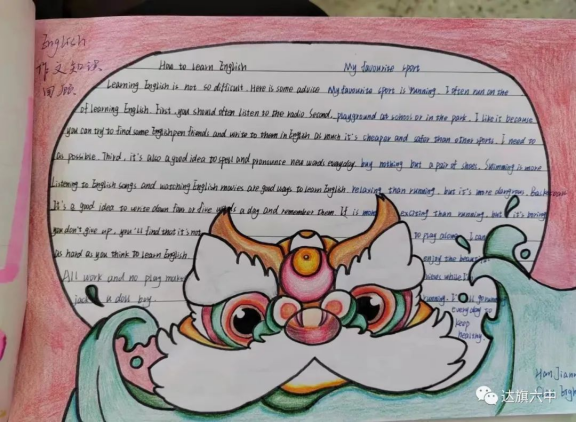 English
作文知识
回顾
How to Learn English
Learning English is not so difficult. Here is some advice
of learning English. First, you should often listen to the radio. Second,
you can try to find some English pen friends and write to them in English as much
as possible. Third, it's also a good idea to spell and pronounce new words everyday.
Listening to English songs and watching English movies are good ways to learn English.
It's a good idea to write down four or five words a day and remember them. If
you don't give up, you'll find that it's not
as hard as you think to learn English.
All work and no play makes
jack a dull boy.
My favourite sport
My favourite sport is running. I often run on the
playground at school or in the park. I like it because
it's cheaper and safer than other sports. I need to
buy nothing but a pair of shoes. Swimming is more
relaxing than running, but it's more dangerous.
is more exciting than running, but it's boring
to play alone. I can
enjoy the beautiful
while I'm
running. I'll go running
everyday to
keep
healthy.
达旗六中